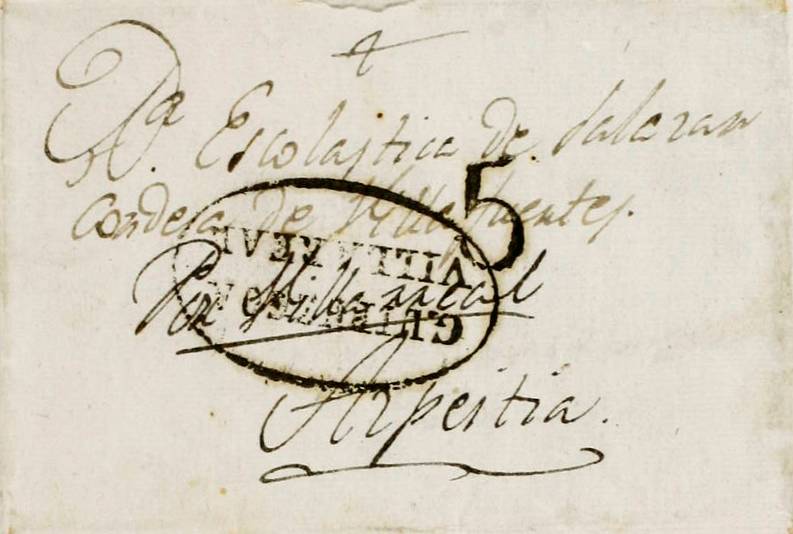 Dª. Escolastica de Salazar
Condesa de Villafuertes.
5
VILLARREAL
GUIPUZCOA
Por Villarreal
Azpeitia.